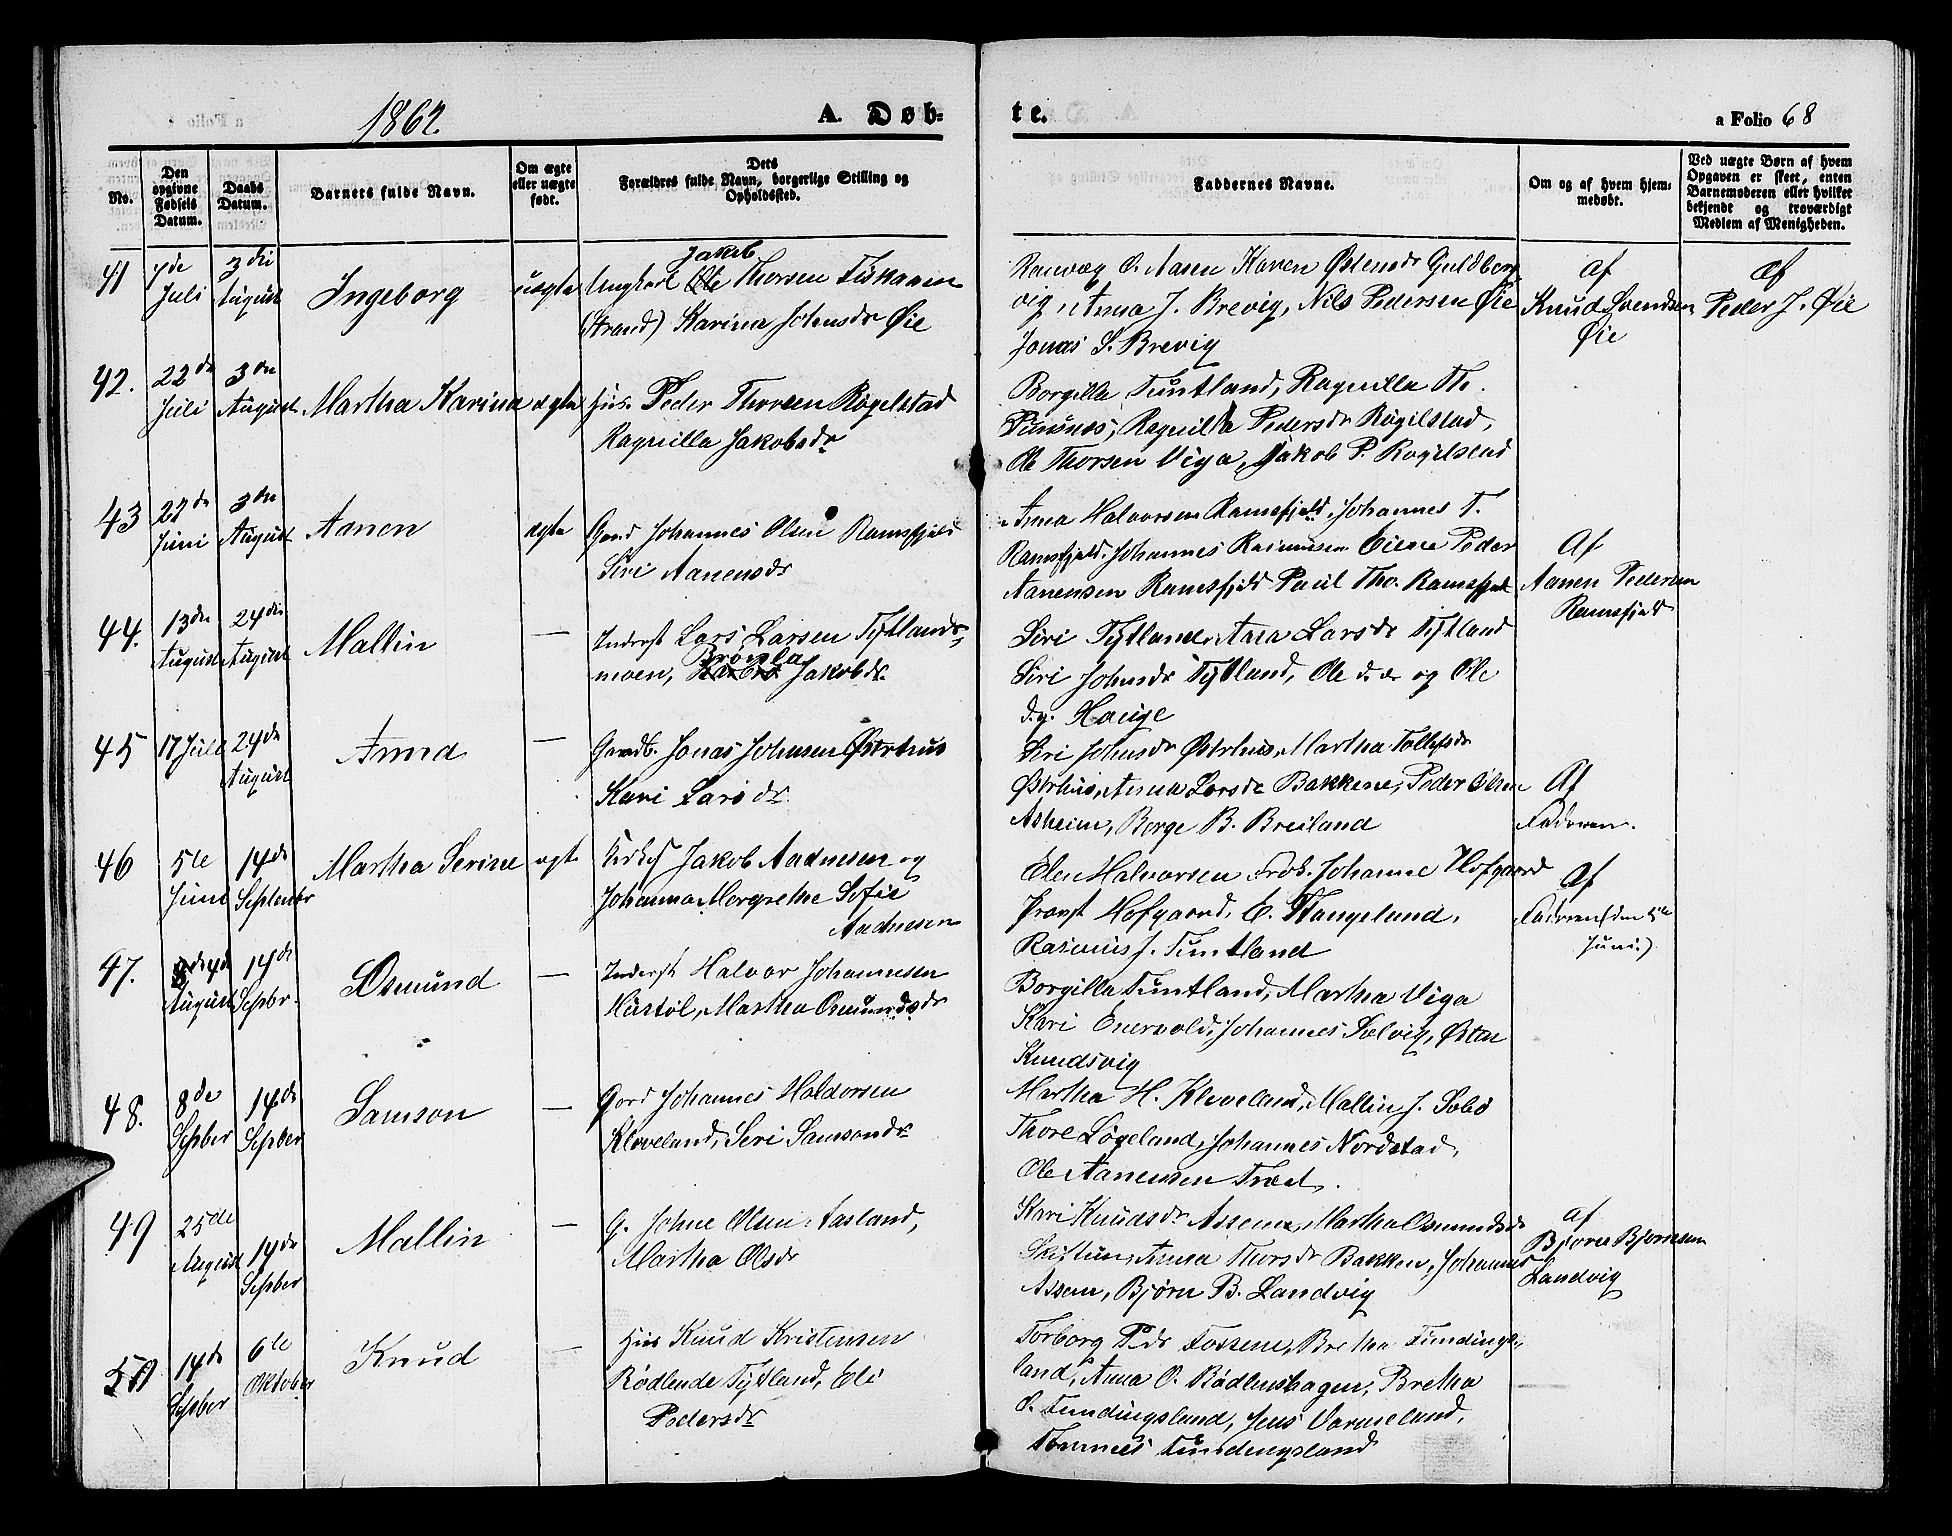 1862.
A. Døb-
te.
a Folio 68
No.
Den opgivne Fødsels Datum.
Daabs Datum.
Barnets fulde Navn.
Om ægte eller uægte født.
Dets Forældres fulde Navn, borgerlige Stilling og Opholdssted.
Faddernes Navne.
Om og af hvem hjemmedøbt.
Ved uægte Børn af hvem Opgaven er skeet, enten Barnemoderen eller hvilket bekjendt og troværdigt Medlem af Menigheden.
41 7de Juli 3die August Ingeborg uægte
Jakob
Ungkarl Ole Thorsen Fiskaaen
(Strand) Karina Johnsdr Øie
Ranvæg O. Aasen Karen Østensdr Guldberg
vig, Anna J. Brevig, Nils Pedersen Øie
Jonas S. Brevig
Af Knud Svendsen Øie
Af Peder J. Øie
42. 22de Juli 3die August Martha Karina ægte
Hus. Peder Thorsen Røgelstad
Ragnilla Jakobsdr
Borgilla Tuntland, Ragnilla Th.
Ragnilda Pedersdr Røgilstad,
Ole Thorsen Viga, Jakob P. Røgilstad
43 22de Juni 3die August Aanen ægte
Gaard Johannes Olsen Ramsfjeld
Siri Aanensdr
Anna Halvorsen Ramsfjeld, Johannes T.
Ramsfjeld, Johannes Rasmussen Eiene Peder
Aanensen Ramsfjeld Paul Tho. Ramsfjeld
Af Aanen Pedersen Ramsfjeld
44. 13de August 24de August Mallin —
Inderst Lars Larsen Tytlands-
moen, Brønla Jakobdr.
Siri Tytland, Anna Larsdr Tytland
Siri Johnsdr Tytland, Ole d.æ og Ole
d.y. Hauge
45 17 Juli 24de August Anna —
Gaardb. Jonas Johnsen Østrhus
Kari Larsdr.
Siri Johnsdr Østrhus, Martha Tollefsdr
Østrhus, Anna Larsdr Bakkene, Peder Olsen
Asheim, Borge B. Breiland
Af Faderen.
46 5te Juni 14de September Martha Serine ægt
Jakob Aadnesen og
Johanna Margrethe Sofie
Aadnesen
Elen Halvorsen Frøk. Johanne Hofgaard
Provst Hofgaard, E. Thangeland,
Rasmus J. Tuntland
Af Faderen (den 5te Juni.)
47. 4de August 14de Septbr. Osmund —
Inderst Halvor Johannesen
Hustøl, Martha Osmundsdr
Borgilla Tuntland, Martha Viga
Kari Enervold, Johannes Solvig, Østen
Knudsvig
48. 8de Septber 14de Septber Samson —
Gard Johannes Haldorsen
Kleveland, Seri Samsonsdr
Martha H. Kleveland, Mallin J. Sobø
Thore Løgeland, Johannes Nordstad,
Ole Aanensen Træet.
49 25de August 14de Septber Mallin —
G. Johne Olsen Aasland,
Martha Olsdr
Kari Knudsdr Assem, Martha Osmundsdr
Skiftun, Anna Thorsdr Bakken, Johannes
Assem, Bjørn B. Landvig
af Bjørn Bjørnsen Landvig
50 14de Septber 6te Oktober Knud —
Hus Knud Kristensen
Rødlende Tytland, Eli
Pedersdr
Torborg Pedr Fossene, Bretha Tundings-
land, Anna O. Rødlenshagen, Bretha
O. Tundingsland, Jens Varmeland,
Tønnes Tundingsland